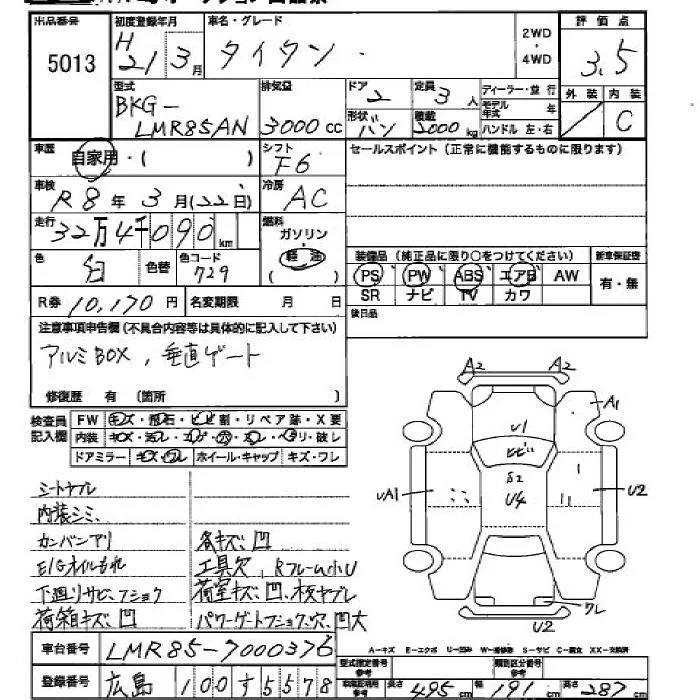 出品番号 初度登録年月 車名・グレード 2WD・4WD 評価点
5013 H21年3月 タイタン 3.5
型式 排気量 ドア 定員 ディーラー・並行 外装 内装
BKG-LMR85AN 3000cc 2 3人 モデル年式 年 C
形状 バン 積載 2000kg ハンドル 左・右
車歴 自家用・( ) シフト F6 セールスポイント(正常に機能するものに限ります)
車検 R8年3月(22日) 冷房 AC
走行 32万4千090km 燃料 ガソリン 軽油 ( )
装備品(純正品に限り○をつけてください) 新車保証書
色 白 色替 色コード 729
PS PW ABS エアB AW 有・無
SR ナビ TV カワ
R券 10,170円 名変期限 月 日 後日品
注意事項申告欄(不具合内容等は具体的に記入して下さい)
アルミBOX, 垂直ゲート
修復歴 有 (箇所 )
検査員記入欄
FW キズ・飛石・ヒビ割・リペア跡・X要
内装
ドアミラー キズ・ワレ ホイール・キャップ キズ・ワレ
A2 A2
A1
U1
ヒビ
S2
U4
UA1
U2
ワレ
U2
シートヤブレ
内装シミ
カンバンアリ 各キズ凹
E/Gオイルもれ 工具欠, Rフレーム小U
下廻りサビ・フショク 荷室キズ凹
荷箱キズ凹 パワーゲートフショク穴凹大
車台番号 LMR85-7000376
A-キズ E-エクボ U-凹み W-補修跡 S-サビ C-腐食 XX-交換済
登録番号 広島 100す5578
型式指定番号 参考 類別区分番号 参考
長さ 495cm 幅 191cm 高さ 287cm